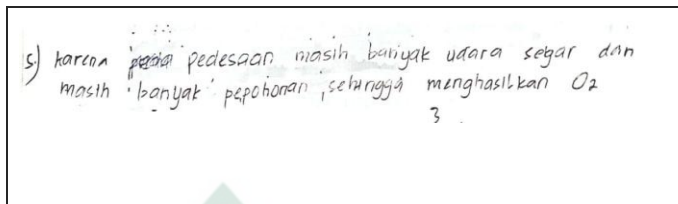 5.) karena pedesaan masih banyak udara segar dan
masih banyak pepohonan, sehingga menghasilkan O2
3